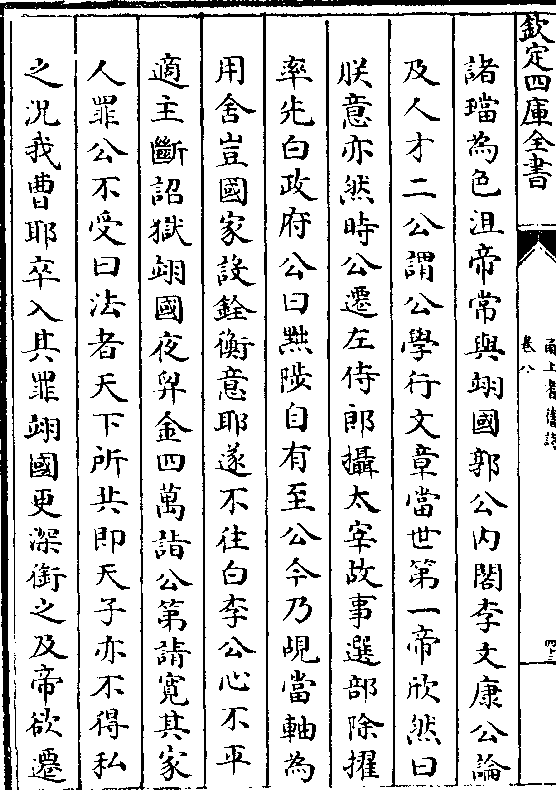 欽定四庫全書
卷八
諸璫為色沮帝常與翊國郭公内閣李文康公論
及人才二公謂公學行文章當世第一帝欣然曰
朕意亦然時公遷左侍郎攝太宰故事選部除擢
率先白政府公曰黜陟自有至公今乃覘當軸為
用舍豈國家設銓衡意耶遂不往白李公心不平
適主斷詔獄翊國夜舁金四萬詣公第請寛其家
人罪公不受曰法者天下所共即天子亦不得私
之况我曹耶卒入其罪翊國更深銜之及帝欲遷